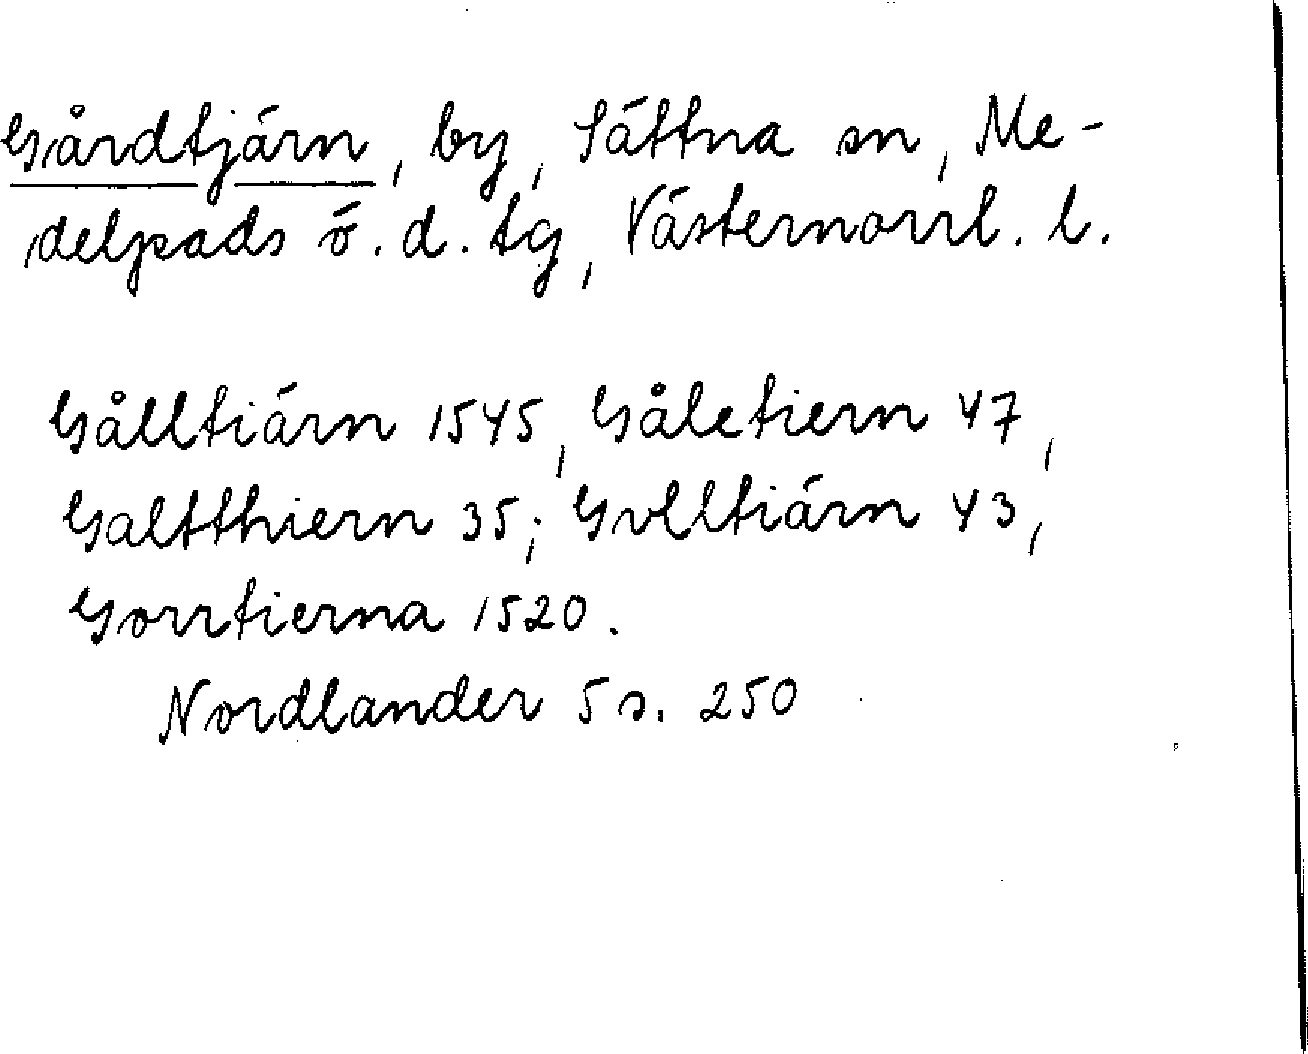 Gårdtjärn, by, Sättna sn, Me-
delpads ö. d. tg, Västernorrl. l.
Gålltiärn 1545, Gåletiern 47,
Galtthiern 35; Gvlltiärn 43,
Gorrtierna 1520.
Nordlander 5 s. 250